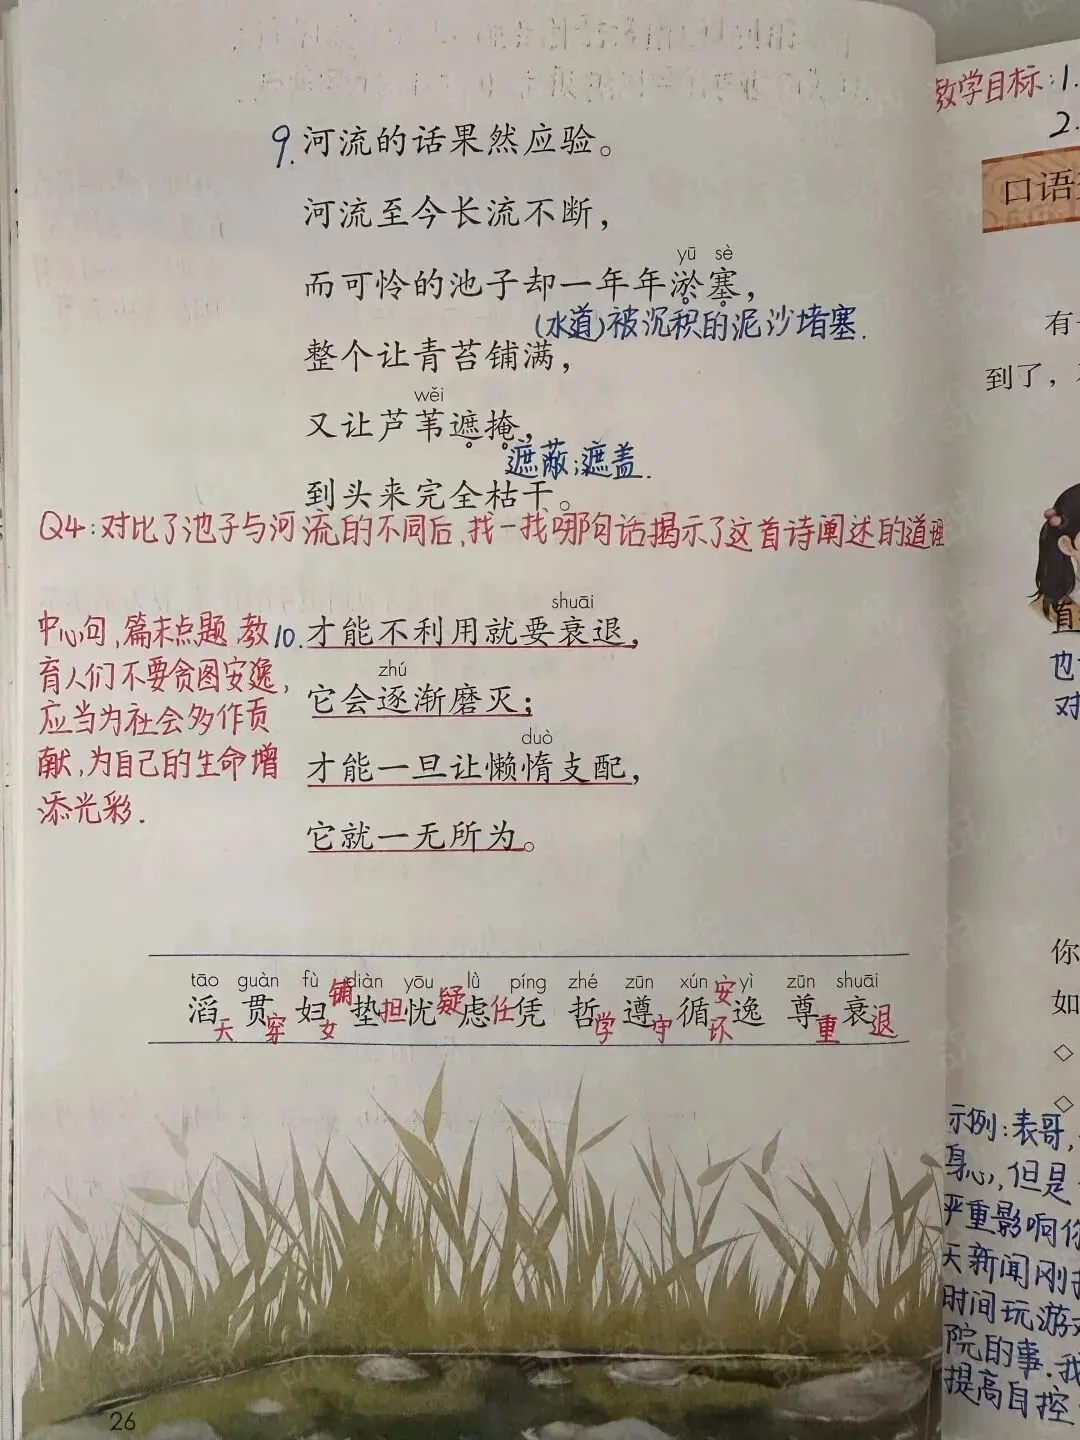 9.河流的话果然应验。
河流至今长流不断，
yū sè
而可怜的池子却一年年淤塞，
(水道)被沉积的泥沙堵塞.
整个让青苔铺满，
wěi
又让芦苇遮掩，
遮蔽;遮盖.
到头来完全枯干。
Q4:对比了池子与河流的不同后,找一找哪句话揭示了这首诗阐述的道理
中心句,篇末点题,教
育人们不要贪图安逸,
应当为社会多作贡
献,为自己的生命增
添光彩.
shuāi
10.才能不利用就要衰退，
zhú
它会逐渐磨灭；
duò
才能一旦让懒惰支配，
它就一无所为。
tāo guàn fù diàn yōu lǜ píng zhé zūn xún yì zūn shuāi
滔天 贯穿 妇女 铺垫 担忧 疑虑 任凭 哲学 遵守 循环 安逸 尊重 衰退
26
教学目标:1.
2.
口语
有
到了，
直
也
对
你
如
◇
◇
示例:表哥,
身心,但是
严重影响你
天新闻刚
时间玩游
院的事.我
提高自控